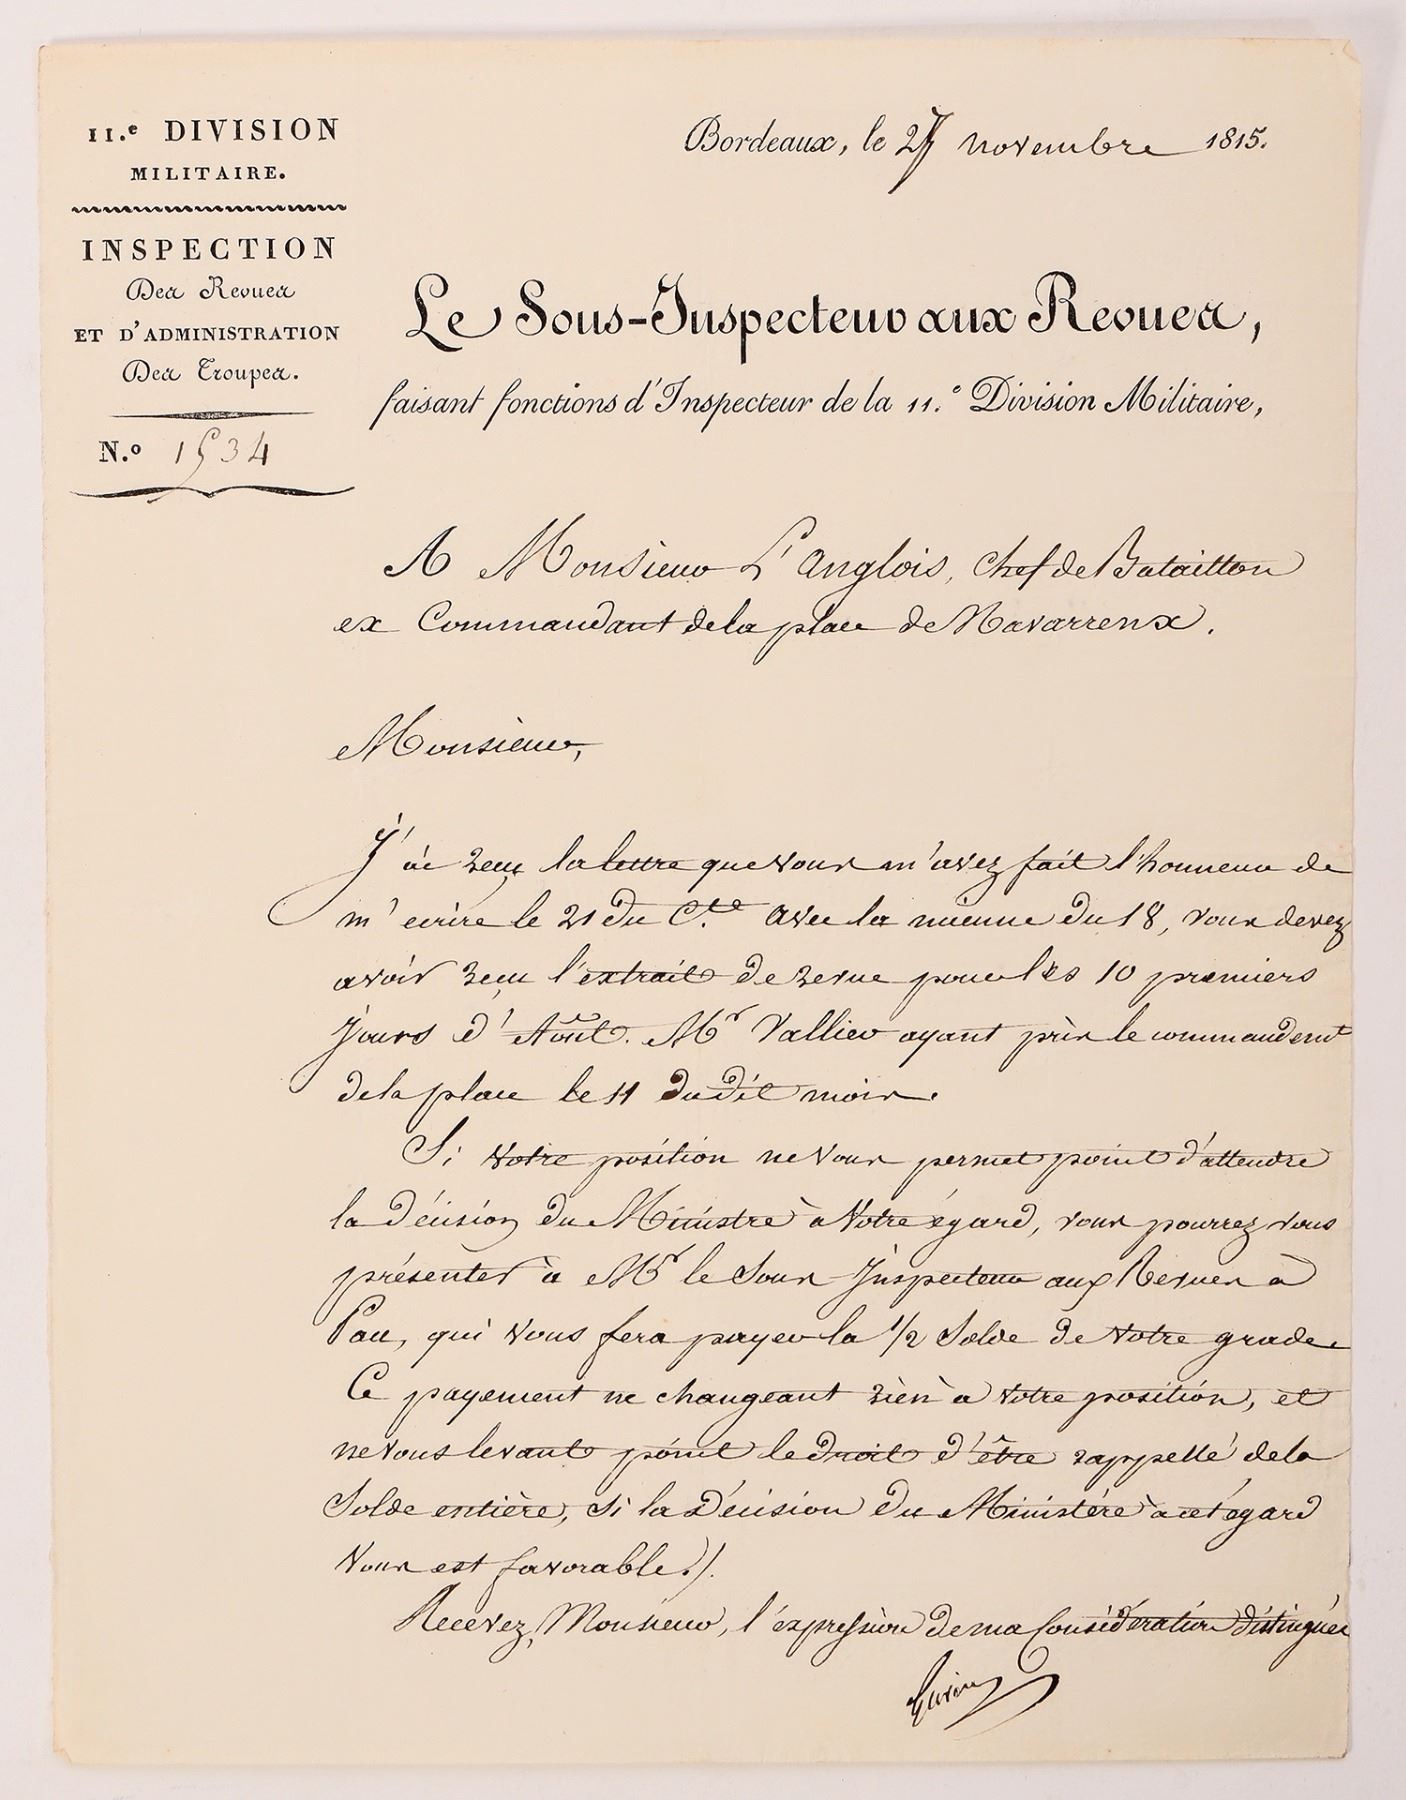 11.e DIVISION
MILITAIRE.
INSPECTION
Des Revues
ET D'ADMINISTRATION
Des Troupes.
N.o 1534
Bordeaux, le novembre 1815.
Le Sous-Inspecteur aux Revues,
faisant fonctions d'Inspecteur de la 11.e Division Militaire,
A Monsieur L'anglois, Chef de Bataillon
ex Commandant de la place de Navarrenx.
Monsieur,
J'ai reçu la lettre que vous m'avez fait l'honneur de
m'ecrire le 21 du C.te Avec la mienne du 18, vous devez
avoir reçu l'extrait de revue pour les 10 premiers
jours d'Août. Mr Vallier ayant pris le commandemt
de la place le 11 du dit mois.
Si votre position ne vous permet point d'attendre
la décision du Ministre à votre égard, vous pourrez vous
présenter à Mr le Sous-Inspecteur aux Revues à
Pau, qui vous fera payer la 1/2 Solde de votre grade.
Ce payement ne changeant rien à votre position, et
ne vous levant point le droit d'être rappellé de la
Solde entière, si la décision du Ministère à cet égard
vous est favorable ./.
Recevez, Monsieur, l'expression de ma Considération distinguée